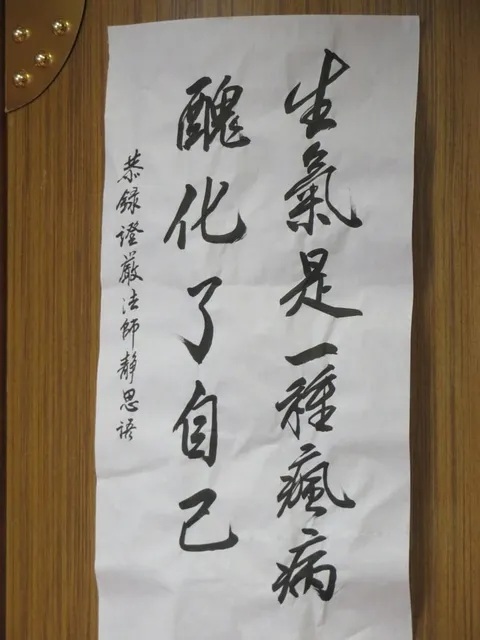 生氣是一種瘋病
醜化了自己
恭錄證嚴法師靜思語